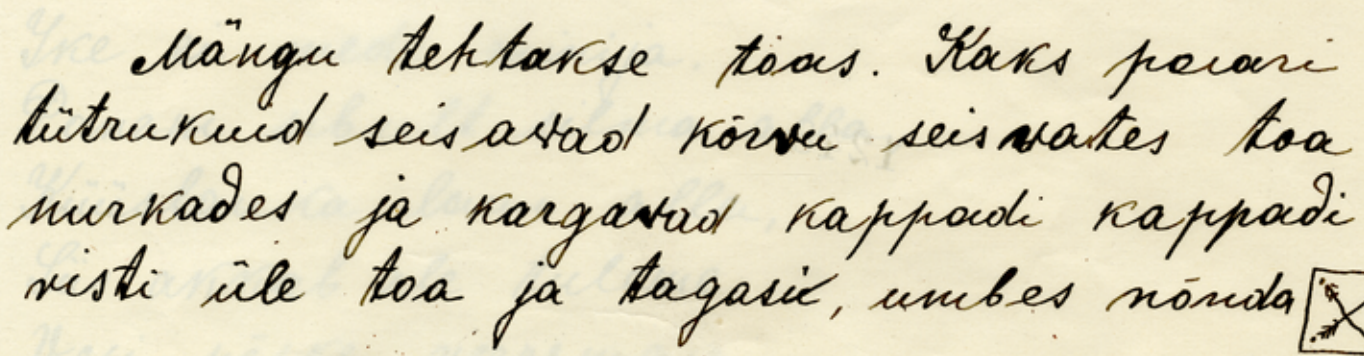 Mängu tehtakse toas. Kaks paari
tütrukuid seisawad kõrvu seiswates toa
nurkades ja kargawad kappadi kappadi
risti üle toa ja tagasi, umbes nõnda